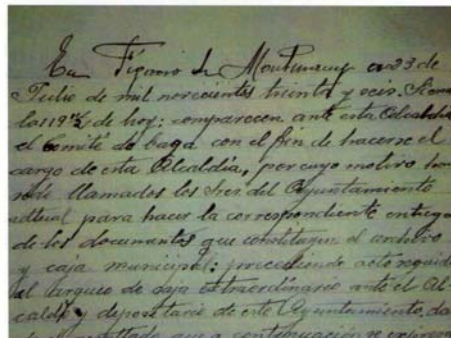 En Fígaro de Montmany a 23 de
Julio de mil novecientos treinta y seis. Siendo
las 19 ½ de hoy: comparecen ante esta Alcaldía
el Comité de baga con el fin de hacerse el
cargo de esta Alcaldía, por cuyo motivo han
sido llamados los Sres. del Ayuntamiento
actual para hacer la correspondiente entrega
de los documentos que constituyen el archivo
y caja municipal: procediendo acto seguido
al arqueo de caja extraordinario ante el Al-
calde y depositario de este Ayuntamiento, da
resultado que a continuación se expresa